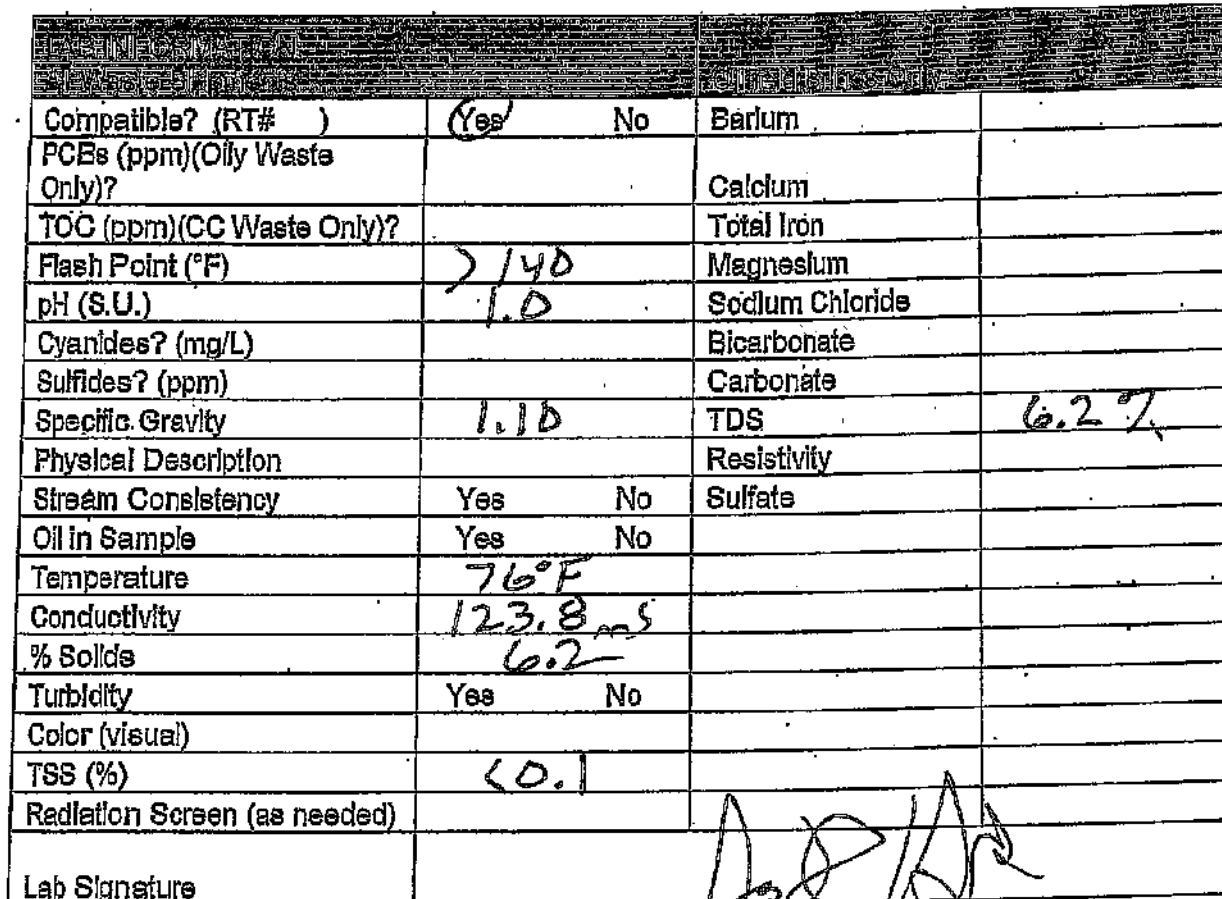 LAB INFORMATION
Compatible? (RT# ) Yes No Barium
PCBs (ppm)(Oily Waste
Only)? Calcium
TOC (ppm)(CC Waste Only)? Total Iron
Flash Point (°F) >140 Magnesium
pH (S.U.) 1.0 Sodium Chloride
Cyanides? (mg/L) Bicarbonate
Sulfides? (ppm) Carbonate
Specific Gravity 1.10 TDS 6.2%
Physical Description Resistivity
Stream Consistency Yes No Sulfate
Oil in Sample Yes No
Temperature 76°F
Conductivity 123.8 mS
% Solids 6.2
Turbidity Yes No
Color (visual)
TSS (%) <0.1
Radiation Screen (as needed)
Lab Signature